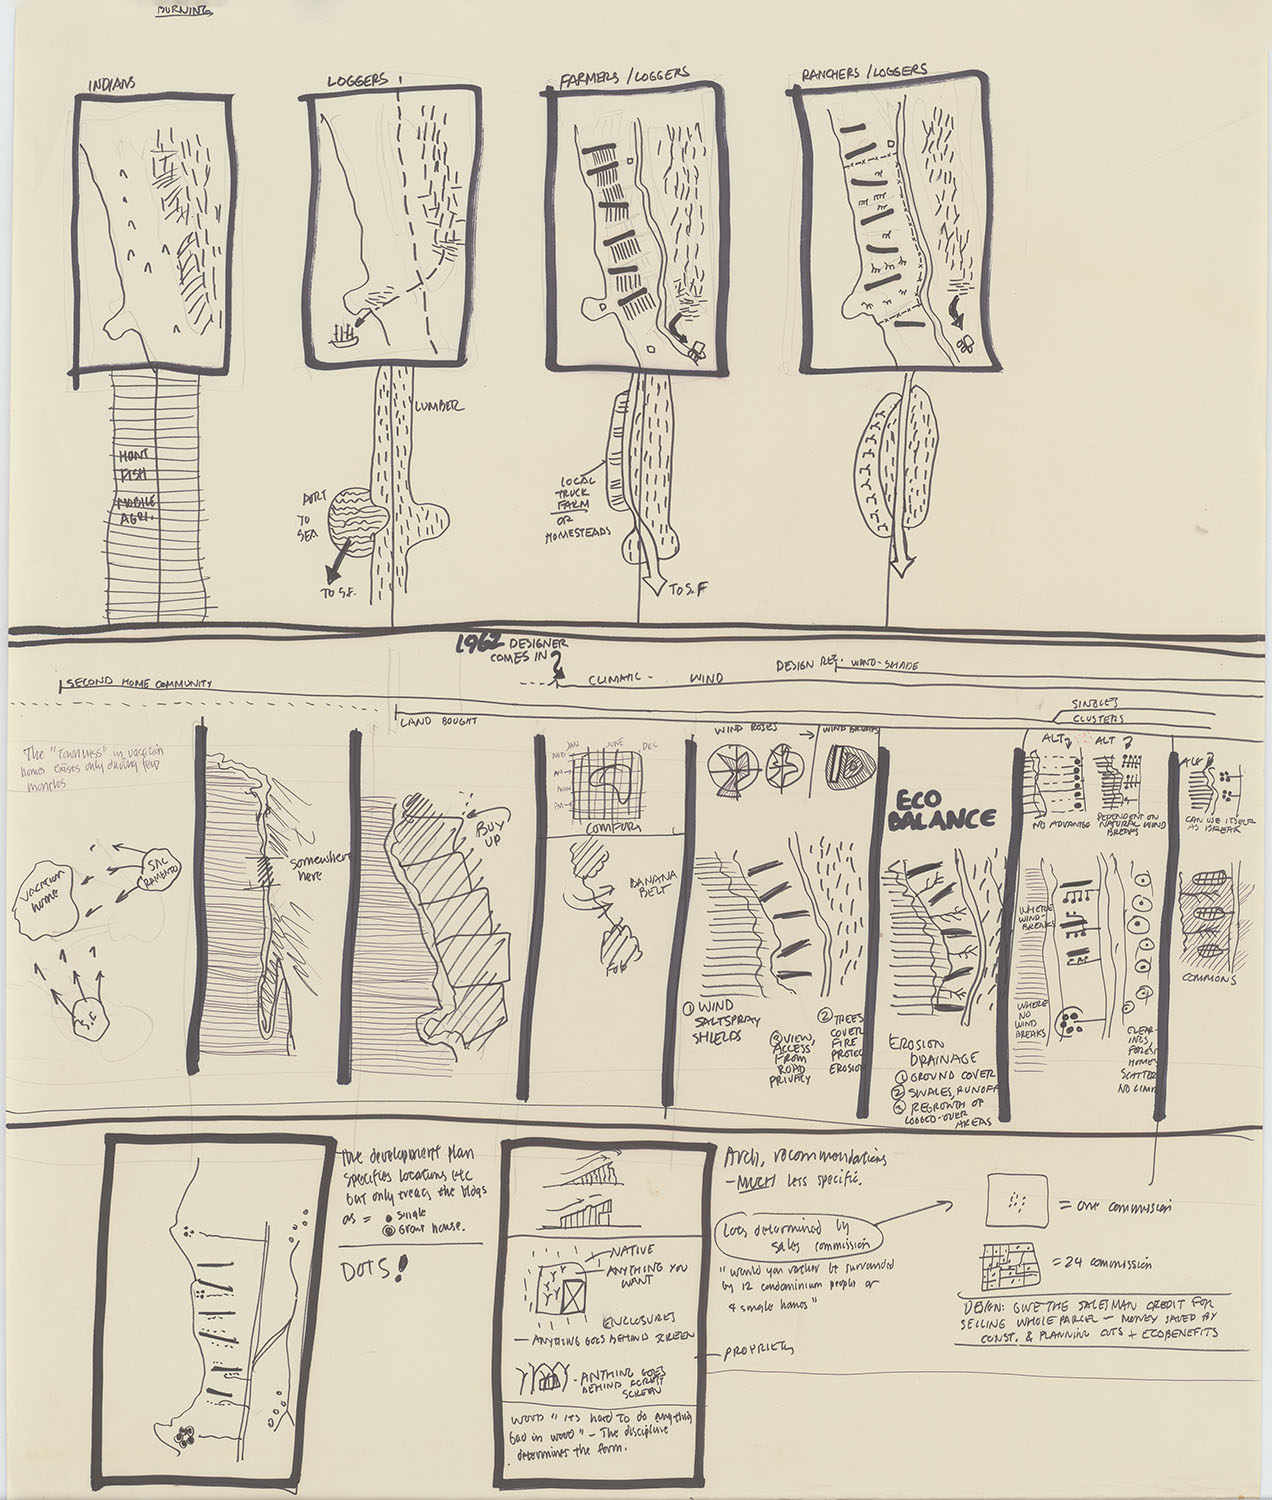 BURNING
INDIANS
LOGGERS
FARMERS / LOGGERS
RANCHERS / LOGGERS
HUNT
FISH
MOBILE
AGRI.
LUMBER
PORT
TO
SEA
TO S.F.
LOCAL
TRUCK
FARM
OR
HOMESTEADS
TO S.F
1962 DESIGNER
COMES IN
SECOND HOME COMMUNITY
CLIMATIC - WIND
DESIGN REF. WIND-SHADE
LAND BOUGHT
SINGLES
CLUSTERS
The "townness" in vacation
homes exists only during few
months
VACATION
home
SAC
RAMENTO
S.F.
somewhere
here
BUY
UP
JAN JUNE DEC
MID
AM
NOON
PM
COMFORT
BANANA
BELT
FOG
WIND ROSES
WIND BREAKS
① WIND
SALTSPRAY
SHIELDS
② VIEW,
ACCESS
FROM
ROAD
PRIVACY
② TREES
COVER
FIRE
PROTEC
EROSION
ECO
BALANCE
EROSION
DRAINAGE
① GROUND COVER
② SWALES, RUNOFF
③ REGROWTH OF
LOGGED-OVER
AREAS
ALT 1
ALT 2
ALT 3
NO ADVANTAGE
DEPENDENT ON
NATURAL WIND
BREAKS
CAN USE ITSELF
AS BREAK
WHERE
WIND-
BREAKS
WHERE
NO
WIND
BREAKS
CLEAR-
INGS
FOREST
HOMES
SCATTER
NO LIMIT
COMMONS
The development plan
specifies locations etc
but only treats the bldgs
as = ● single
◉ Group house.
DOTS!
NATIVE
ANYTHING YOU
WANT
ENCLOSURES
— ANYTHING GOES BEHIND SCREEN
- ANTHING GOES
BEHIND FOREST
SCREEN
WOOD "its hard to do anything
bad in wood" - The discipline
determines the form.
Arch. recommendations
- MUCH less specific.
Lots determined by
sales commission
"would you rather be surrounded
by 12 condominium people or
4 single homes"
PROPRIETY
= one commission
= 24 commission
DESIGN: GIVE THE SALESMAN CREDIT FOR
SELLING WHOLE PARCEL - MONEY SAVED BY
CONST. & PLANNING CUTS + ECOBENEFITS